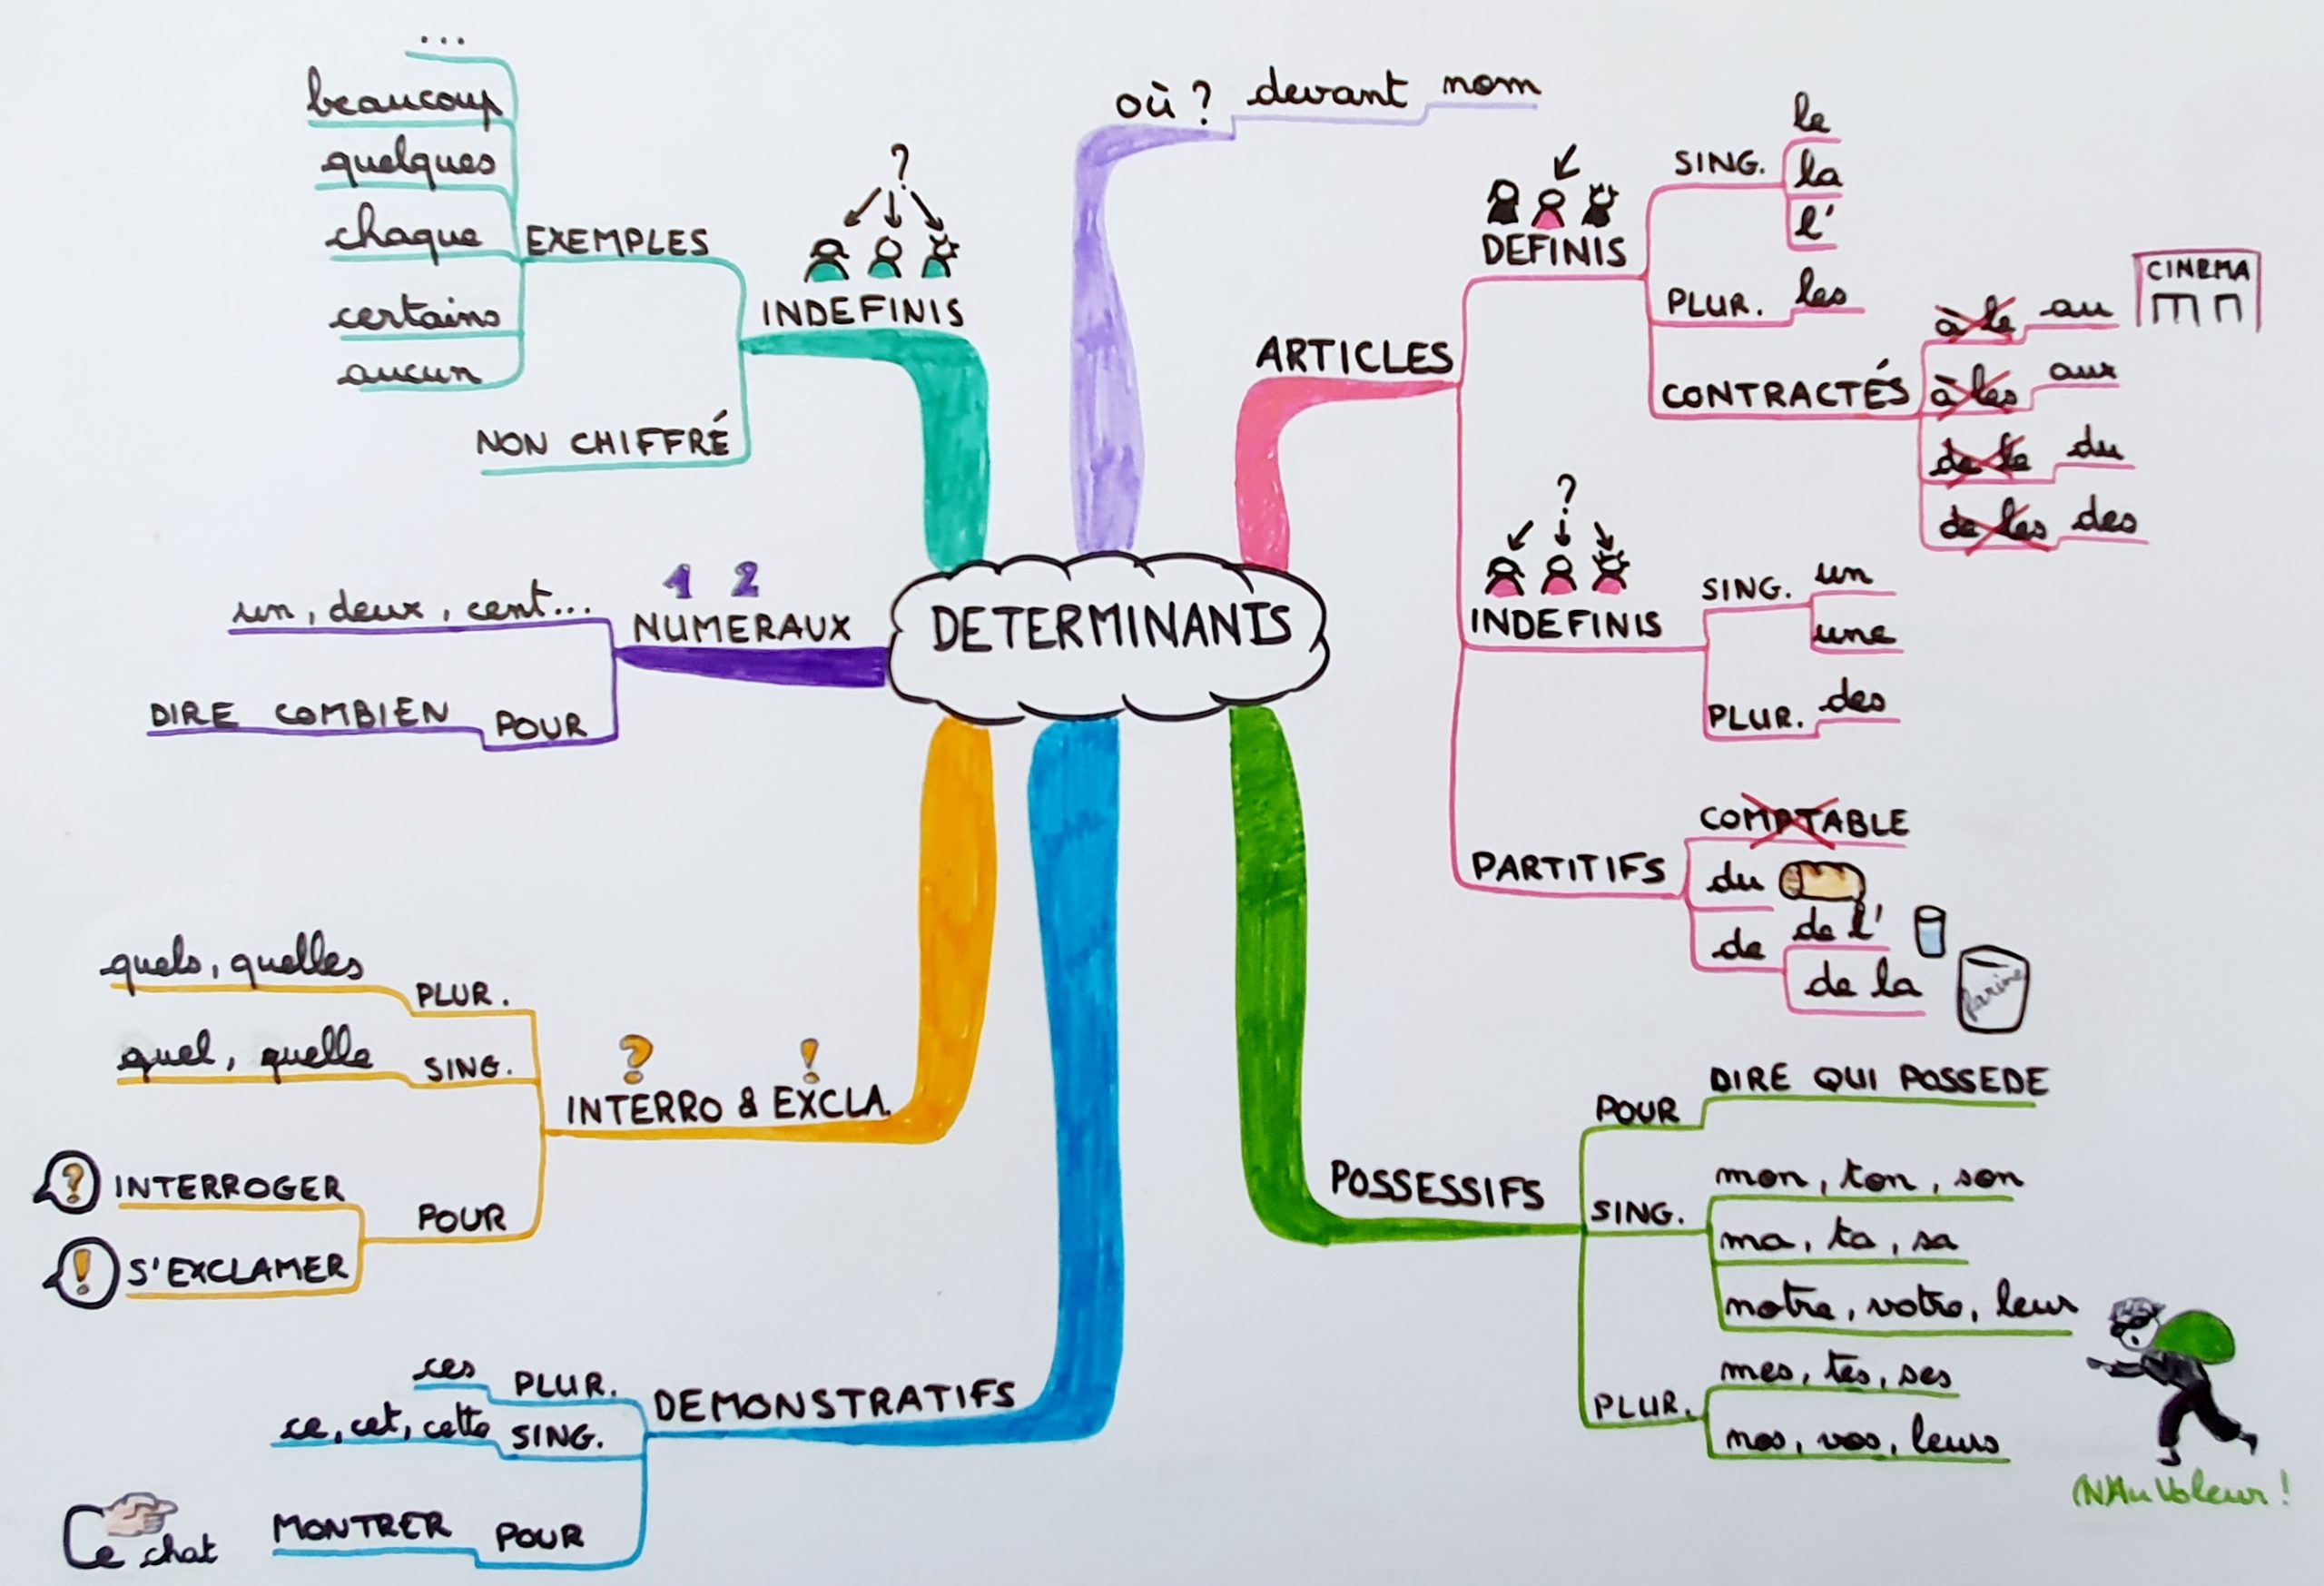 DETERMINANTS
où ? devant nom
ARTICLES
DEFINIS
SING.
le
la
l'
PLUR. les
CONTRACTÉS
à le au
CINEMA
à les aux
de le du
de les des
?
INDEFINIS
SING.
un
une
PLUR. des
PARTITIFS
COMPTABLE
du
de
de l'
de la
farine
POSSESSIFS
POUR DIRE QUI POSSEDE
SING.
mon, ton, son
ma, ta, sa
notre, votre, leur
PLUR.
mes, tes, ses
nos, vos, leurs
Au Voleur !
DEMONSTRATIFS
ces PLUR.
ce, cet, cette SING.
MONTRER POUR
Ce chat
? !
INTERRO & EXCLA.
quels, quelles PLUR.
quel, quelle SING.
POUR
? INTERROGER
! S'EXCLAMER
1 2
NUMERAUX
un, deux, cent...
DIRE COMBIEN POUR
?
INDEFINIS
EXEMPLES
...
beaucoup
quelques
chaque
certains
aucun
NON CHIFFRÉ